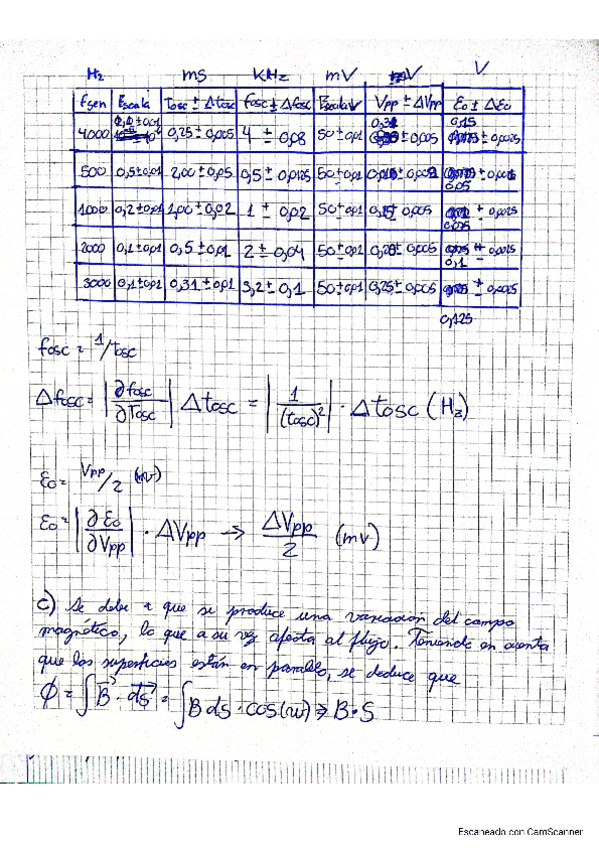 Hz ms KHz mV V V
Fgen Escala Tosc ± Δtosc fosc ± Δfosc Escala V Vpp ± ΔVpp ε₀ ± Δε₀
4000 0,25 ± 0,005 4 ± 0,08 50 ± 0,1 ± 0,005 0,15 ± 0,0025
500 0,5 ± 0,01 2,00 ± 0,05 0,5 ± 0,0125 50 ± 0,1
0,05
1000 0,2 ± 0,01 1,00 ± 0,02 1 ± 0,02 50 ± 0,1 0,15 ± 0,005 ± 0,0025
2000 0,1 ± 0,01 0,5 ± 0,01 2 ± 0,04 50 ± 0,1 ± 0,005 ± 0,0025
0,1
3000 0,1 ± 0,01 0,31 ± 0,01 3,2 ± 0,1 50 ± 0,1 0,25 ± 0,005 ± 0,0025
0,125
fosc = 1/tosc
Δfosc = |∂fosc/∂Tosc| Δtosc = |1/(tosc)²| · Δtosc (Hz)
ε₀ = Vpp/2 (mV)
ε₀ = |∂ε₀/∂Vpp| · ΔVpp → ΔVpp/2 (mV)
c) Se debe a que se produce una variación del campo
magnético, lo que a su vez afecta al flujo. Teniendo en cuenta
que las superficies están en paralelo, se deduce que
ϕ = ∫B⃗ · dS⃗ = ∫B dS · cos(w) ⇒ B · S
Escaneado con CamScanner